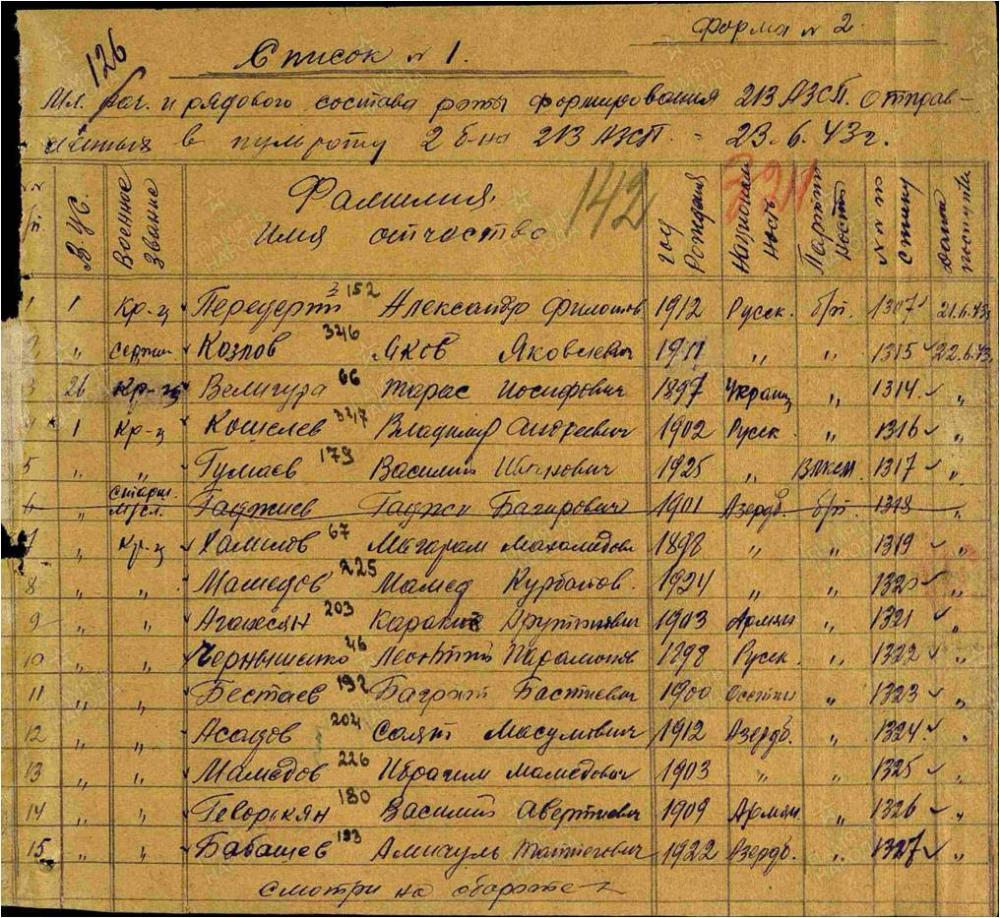 Форма № 2
126
Список № 1.
Мл. нач. и рядового состава роты формирования 213 АЗСП. Отправ-
ленных в пульроту 2 б-на 213 АЗСП. - 23.6.43г.
№№ п/п. В.У.С. Военное звание Фамилия, имя отчество 142 год Рождения Националь ность Партий ность №№ по списку Дата поступл
1 1 Кр-ц 152 Александр 1912 Русск. б/п. 1307 21.6.43
2 " Козлов 346 Яков Яковлевич 1911 " " 1315 22.6.43
3 26 Кр-ц Велигура 66 Тарас Иосифович 1897 Украин 1314 "
4 1 Кр-ц Кошелев 347 Владимир Андреевич 1902 Русск. " 1316 "
5 " " Гумаев 179 Василий Иванович 1925 " Влксм. 1317 "
6 " Гаджиев Гаджи Багирович 1901 Азерб. б/п. 1318 "
7 " Кр-ц Халилов 67 Магарам 1898 " " 1319 "
8 " " Мамедов 225 Мамед Курбанов. 1924 " " 1320 "
9 " " Аганесян 203 1903 Армян " 1321 "
10 " " Чернышенко 46 Леонтий Парамонов 1898 Русск. " 1322 "
11 " " Бестаев 192 Баграт 1900 Осетин " 1323 "
12 " " Асадов 204 1912 Азерб. " 1324 "
13 " " Мамедов 226 Ибрагим Мамедович 1903 " " 1325 "
14 " " Геворкян 180 Василий 1909 Армян. " 1326 "
15 " " Бабашев 193 1922 Азерб. " 1327 "
смотри на обороте